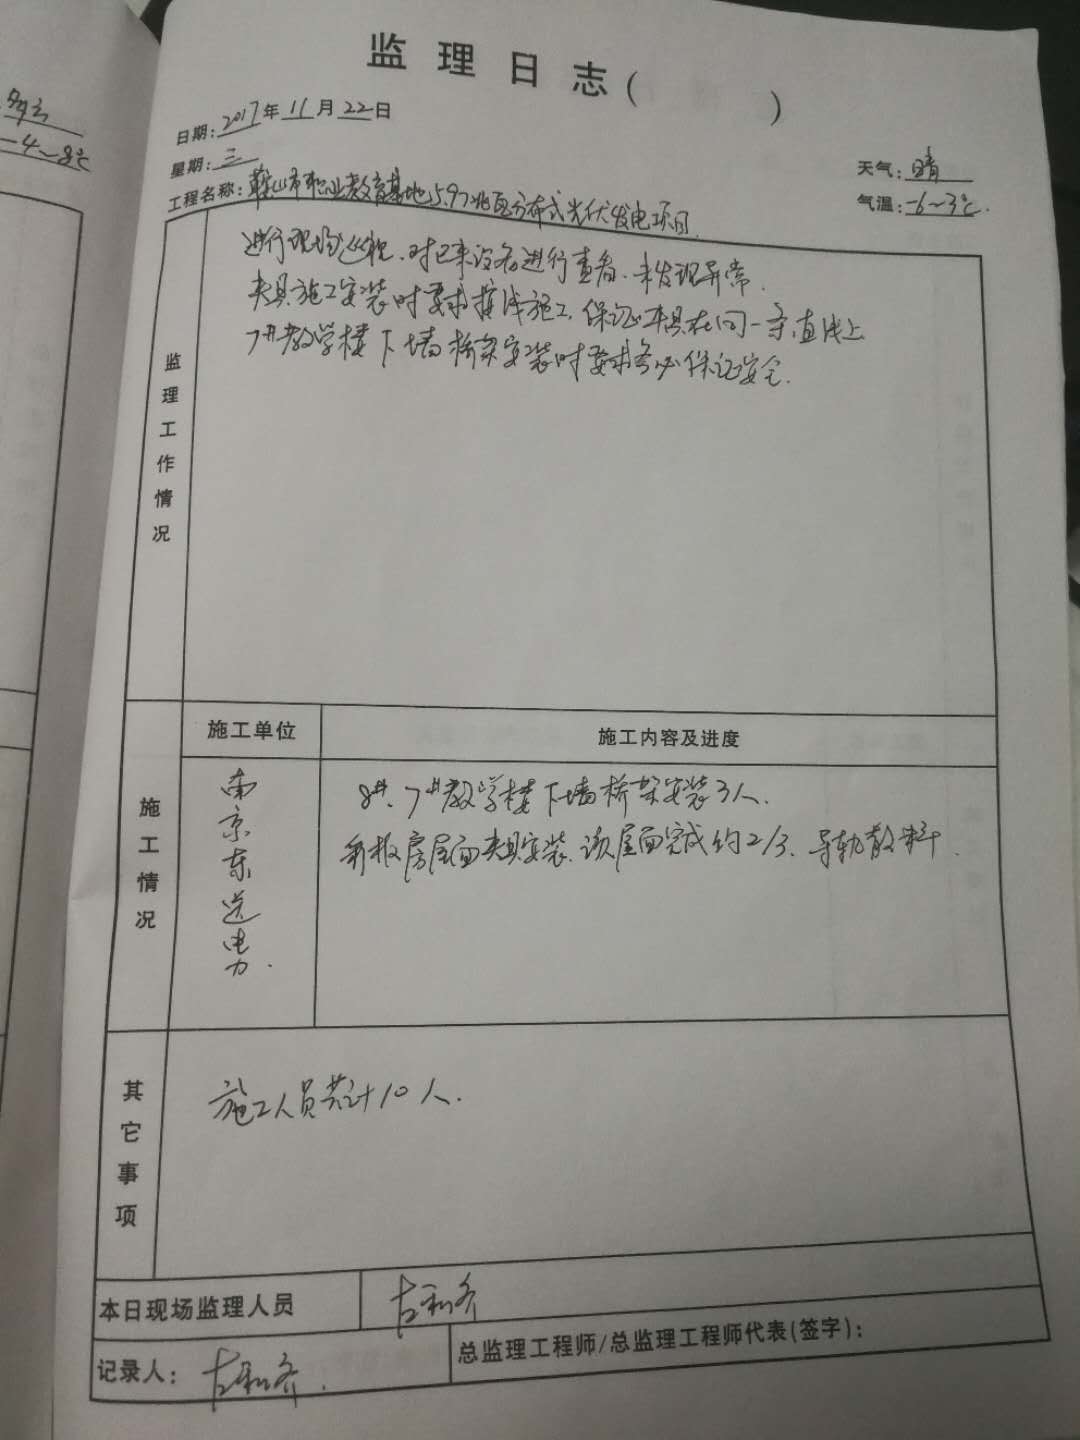 多云
-4~8℃
监理日志( )
日期:2017年11月22日
星期:三
天气:晴
工程名称:鞍山市职业教育基地5.97兆瓦分布式光伏发电项目.
气温:-6~3℃.
监理工作情况
进行现场巡视.对已来设备进行查看.未发现异常.
夹具施工安装时要求接线施工,保证夹具在同一条直线上
7#教学楼下墙桥架安装时要求务必保证安全.
施工单位
施工内容及进度
施工情况
南京东送电力.
8#、7#教学楼下墙桥架安装3人.
彩板房屋面夹具安装.该屋面完成约2/3、导轨散料.
其它事项
施工人员共计10人.
本日现场监理人员
记录人:
总监理工程师/总监理工程师代表(签字):